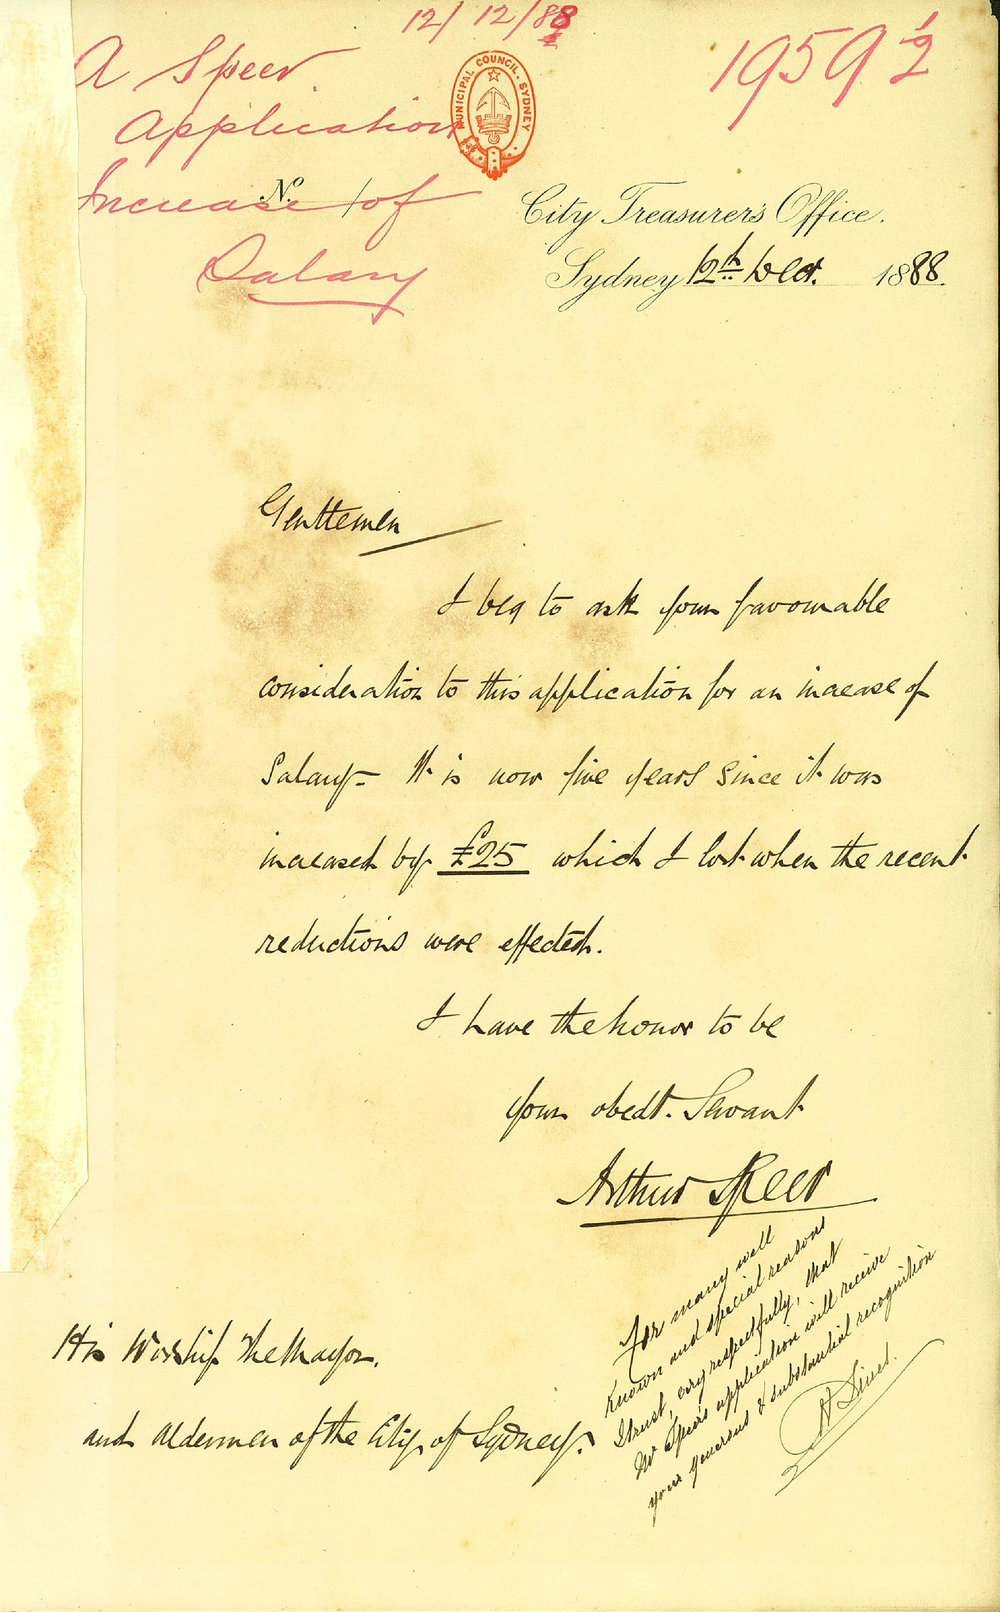 12/12/88
A Speer
1959 1/2
Application
Increase of
Salary
MUNICIPAL COUNCIL. SYDNEY
No.
City Treasurer's Office.
Sydney 12th Decr. 1888.
Gentlemen
I beg to ask your favourable
consideration to this application for an increase of
Salary - It is now five years since it was
increased by £25 which I lost when the recent
reductions were effected.
I have the honor to be
Your obedt. Servant
Arthur Speer
His Worship The Mayor.
and Aldermen of the City of Sydney.
For many well
known and special reasons
I trust, very respectfully, that
Mr Speer's application will receive
your generous & substantial recognition